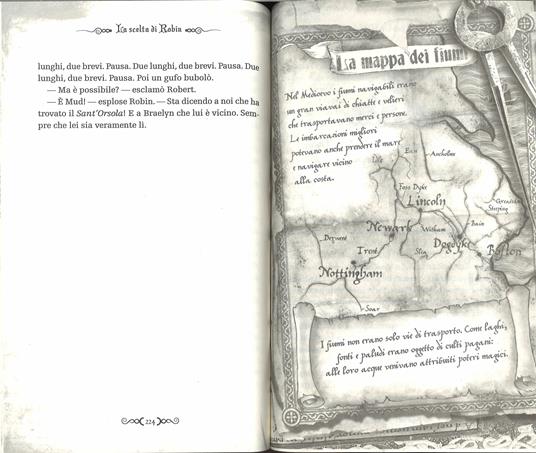 La scelta di Robin
lunghi, due brevi. Pausa. Due lunghi, due brevi. Pausa. Due
lunghi, due brevi. Pausa. Poi un gufo bubolò.
— Ma è possibile? — esclamò Robert.
— È Mud! — esplose Robin. — Sta dicendo a noi che ha
trovato il Sant’Orsola! E a Braelyn che lui è vicino. Sem-
pre che lei sia veramente lì.
224
La mappa dei fiumi
Nel Medioevo i fiumi navigabili erano
un gran viavai di chiatte e velieri
che trasportavano merci e persone.
Le imbarcazioni migliori
potevano anche prendere il mare
e navigare vicino
alla costa.
Eau
Ancholme
Foss Dyke
Lincoln
Steeping
Newark
Witham
Bain
Derwent
Dogdyke
Trent
Slea
Boston
Nottingham
Soar
I fiumi non erano solo vie di trasporto. Come laghi,
fonti e paludi erano oggetto di culti pagani:
alle loro acque venivano attribuiti poteri magici.